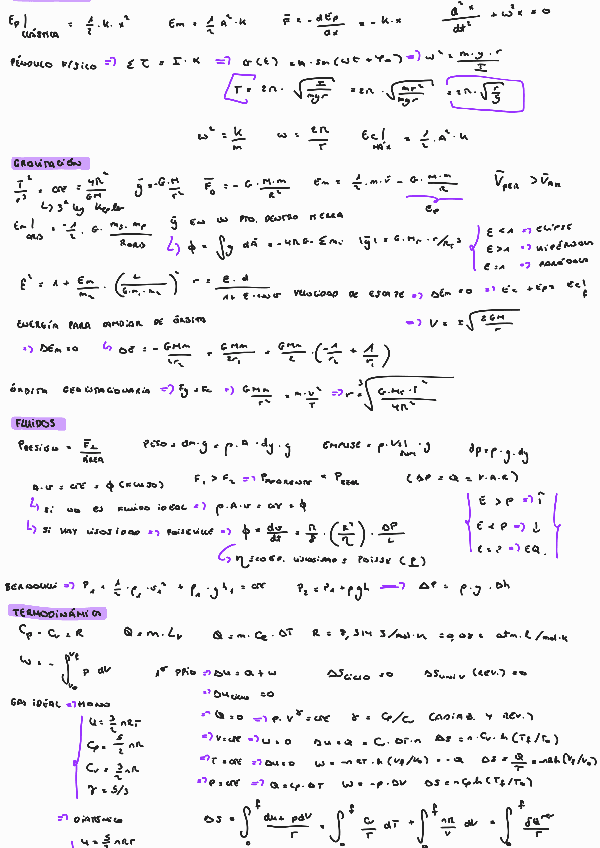 Ep|elástica = 1/2 · K · x² Em = 1/2 A² · K F̄ = -dEp/dx = -K·x d²x/dt² + ω²x = 0
PÉNDULO FÍSICO => Σ τ = I · α => θ(t) = A · sen(ωt + φ₀) => ω² = m·g·r/I
T = 2π · √(I/mgr) = 2π · √(mr²/mgr) = 2π · √(r/g)
ω² = K/m ω = 2π/T Ec|MÁX = 1/2 · A² · K
GRAVITACIÓN
T²/r³ = cte = 4π²/GM ḡ = -G·M/r² F̄g = -G · M·m/R² Em = 1/2 · m·v² - G · M·m/R V̄PER > V̄AF
↳ 3ª ley Kepler Ep
Em|ORB = -1/2 · G · ms·mp/RORB ḡ EN UN PTO. DENTRO TIERRA
↳ ϕ = ∫g dA = -4πG · Σmi |ḡ| = G·MT · r/RT³
E < 1 => ELIPSE
E > 1 => HIPÉRBOLA
E = 1 => PARÁBOLA
VELOCIDAD DE ESCAPE => ΔEm = 0 => Ec + Ep = Ec|f
ENERGÍA PARA CAMBIAR DE ÓRBITA => V = ±√(2GM/r)
=> ΔEm = 0 ↳ ΔE = -GMm/2r₂ + GMm/2r₁ = GMm/2 · (-1/r₂ + 1/r₁)
ÓRBITA GEOESTACIONARIA => Fg = Fc => GMm/r² = m·v²/r => r = ³√(G·MT·T²/4π²)
FLUIDOS
PRESIÓN = F̄⊥/ÁREA PESO = dm·g = ρ·A·dy·g EMPUJE = ρ·V|sum · g dp = ρ·g·dy
A·v = cte = ϕ (FLUJO) F₁ > F₂ => PAPARENTE = PREAL
↳ SI NO ES FLUIDO IDEAL => ρ·A·v = cte = ϕ
E > P => ↑
E < P => ↓
E = P => EQ.
↳ SI HAY VISCOSIDAD => POISEUILLE => ϕ = dv/dt = π/8 · (R⁴/η) · ΔP/L
↳ η = COEF. VISCOSIDAD = POISE (P)
BERNOULLI => P₁ + 1/2 · ρ₁ · v₁² + ρ₁ · g h₁ = cte P₂ = P₁ + ρgh => ΔP = ρ · g · Δh
TERMODINÁMICA
Cp - Cv = R Q = m·Lv Q = m·Ce·ΔT R = 8,314 J/mol·K = 0,082 atm·L/mol·K
W = -∫ p dV 1er PPIO => Δu = Q + W ΔSCICLO = 0 ΔSUNIV (REV.) = 0
=> ΔuCICLO = 0
GAS IDEAL => MONO
U = 3/2 nRT
Cp = 5/2 nR
Cv = 3/2 nR
γ = 5/3
=> Q = 0 => p·Vγ = cte γ = Cp/Cv (ADIAB. Y REV.)
=> V = cte => W = 0 Δu = Q = Cv·ΔT·n ΔS = n·Cv·ln(Tf/T₀)
=> T = cte => Δu = 0 W = -nRT·ln(Vf/V₀) = -Q ΔS = Q/T = nR ln(Vf/V₀)
=> P = cte => Q = Cp·ΔT W = -p·ΔV ΔS = nCp ln(Tf/T₀)
=> DIATÓMICO ΔS = ∫ du + pdV/T = ∫ Cv/T dT + ∫ nR/V dV = ∫ δQrev/T
U = 5/2 nRT